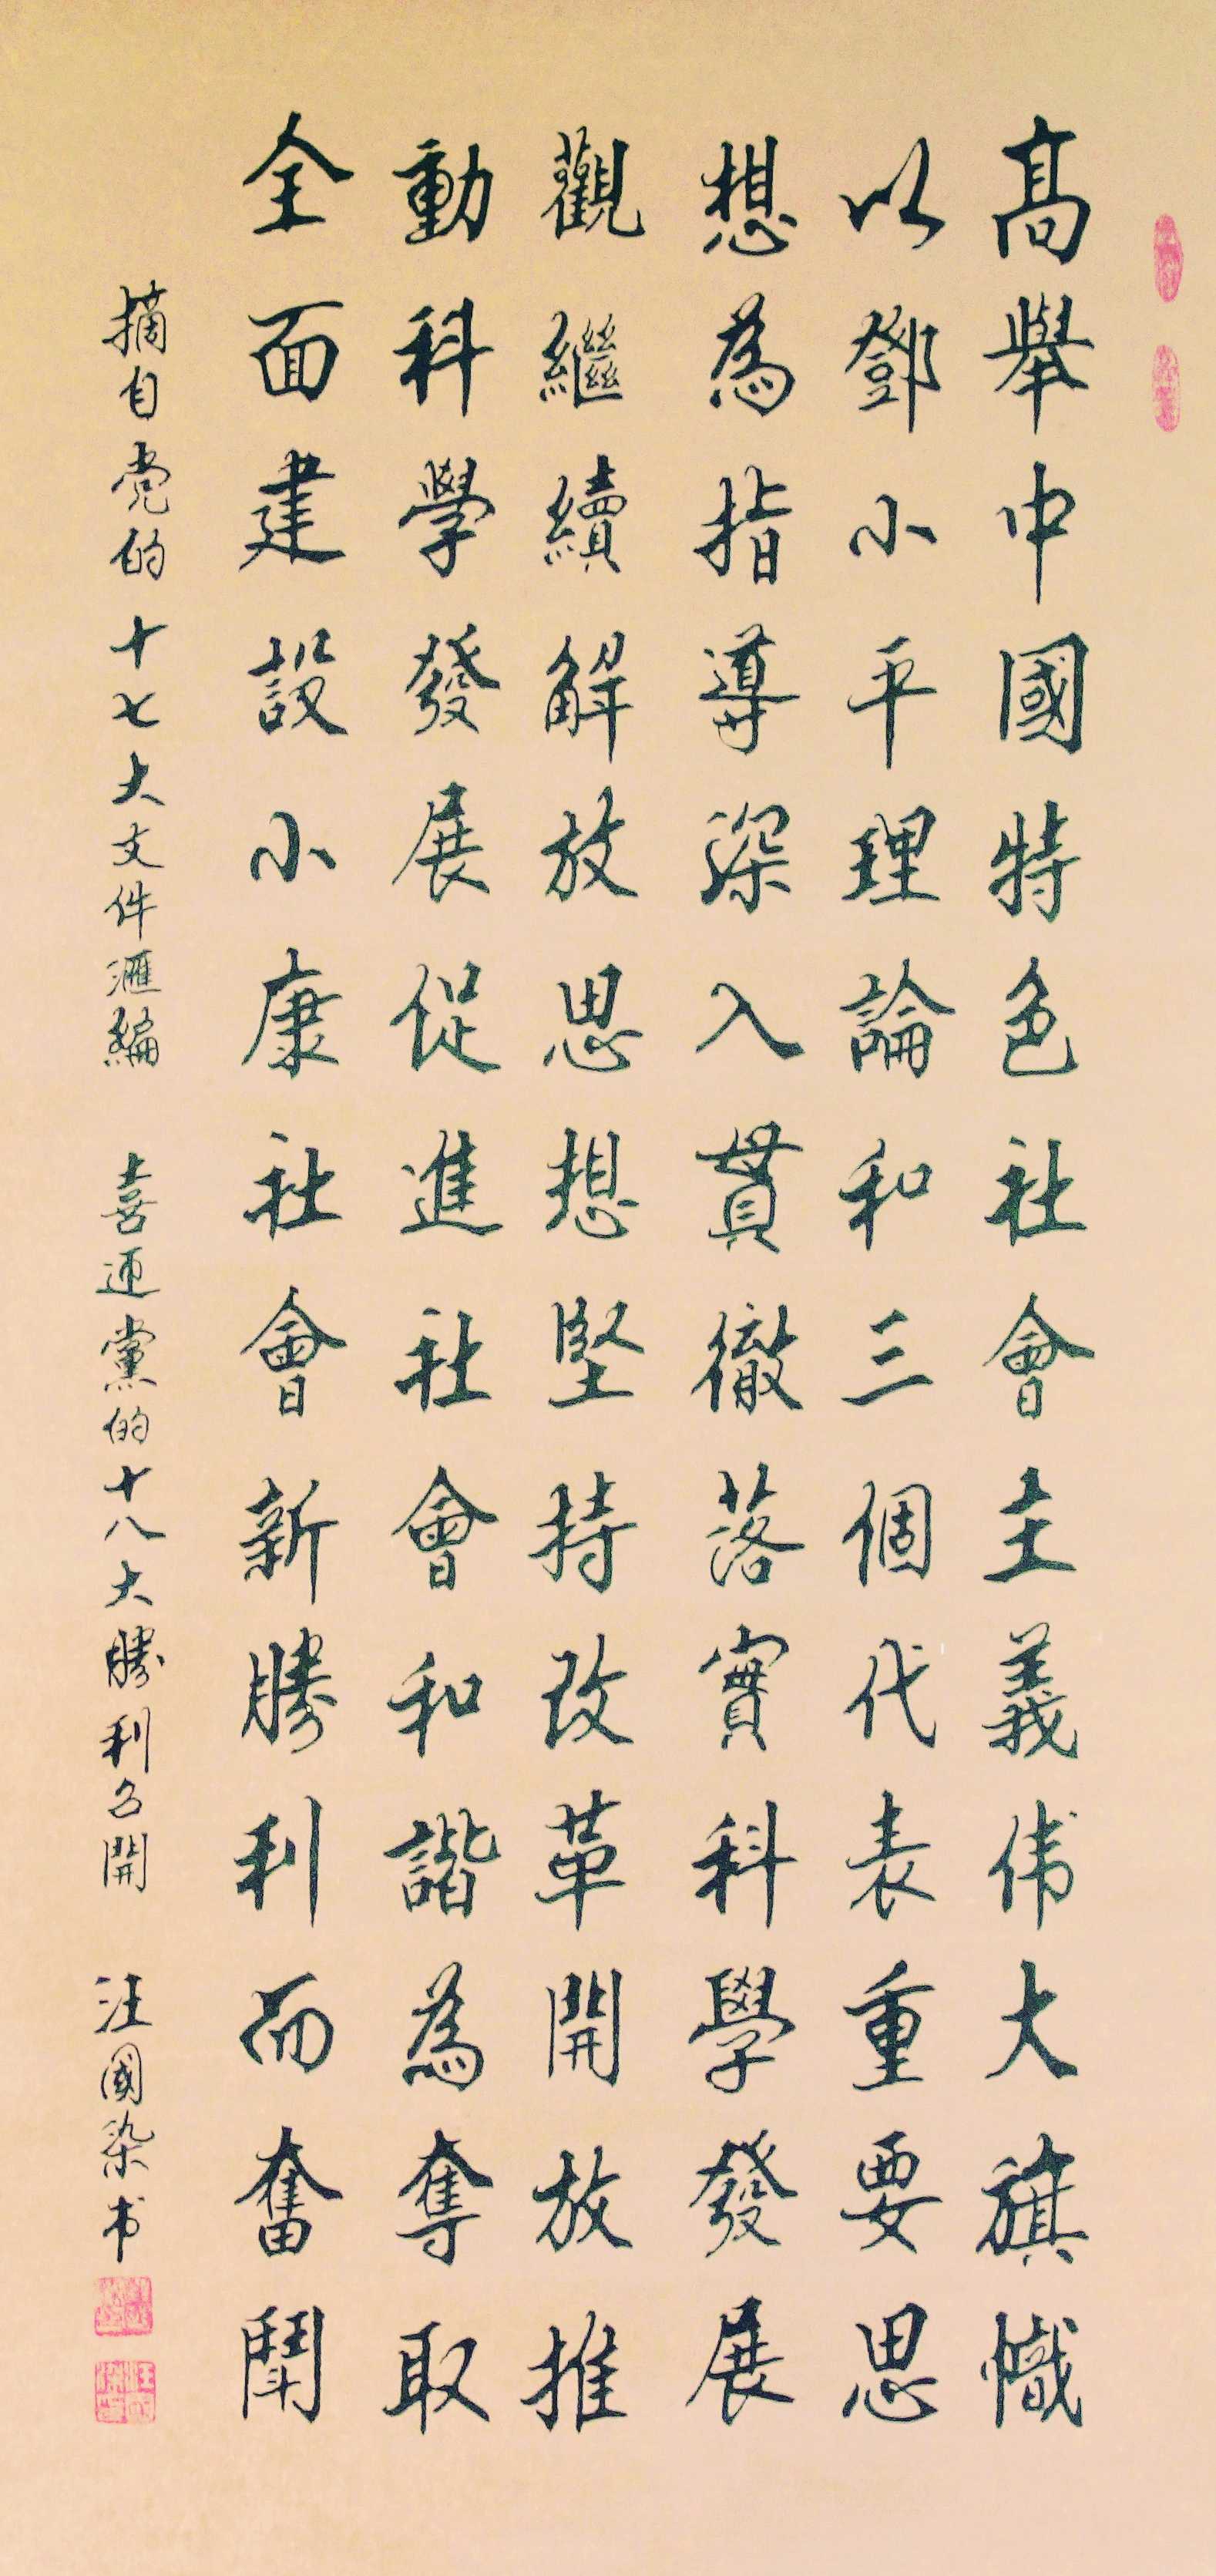 高舉中國特色社會主義伟大旗幟
以鄧小平理論和三個代表重要思
想為指導深入贯徹落實科學發展
觀繼續解放思想堅持改革開放推
動科學發展促進社會和諧為奪取
全面建設小康社會新勝利而奮鬪
摘自党的十七大文件滙編 喜迎黨的十八大勝利召開 汪國染书